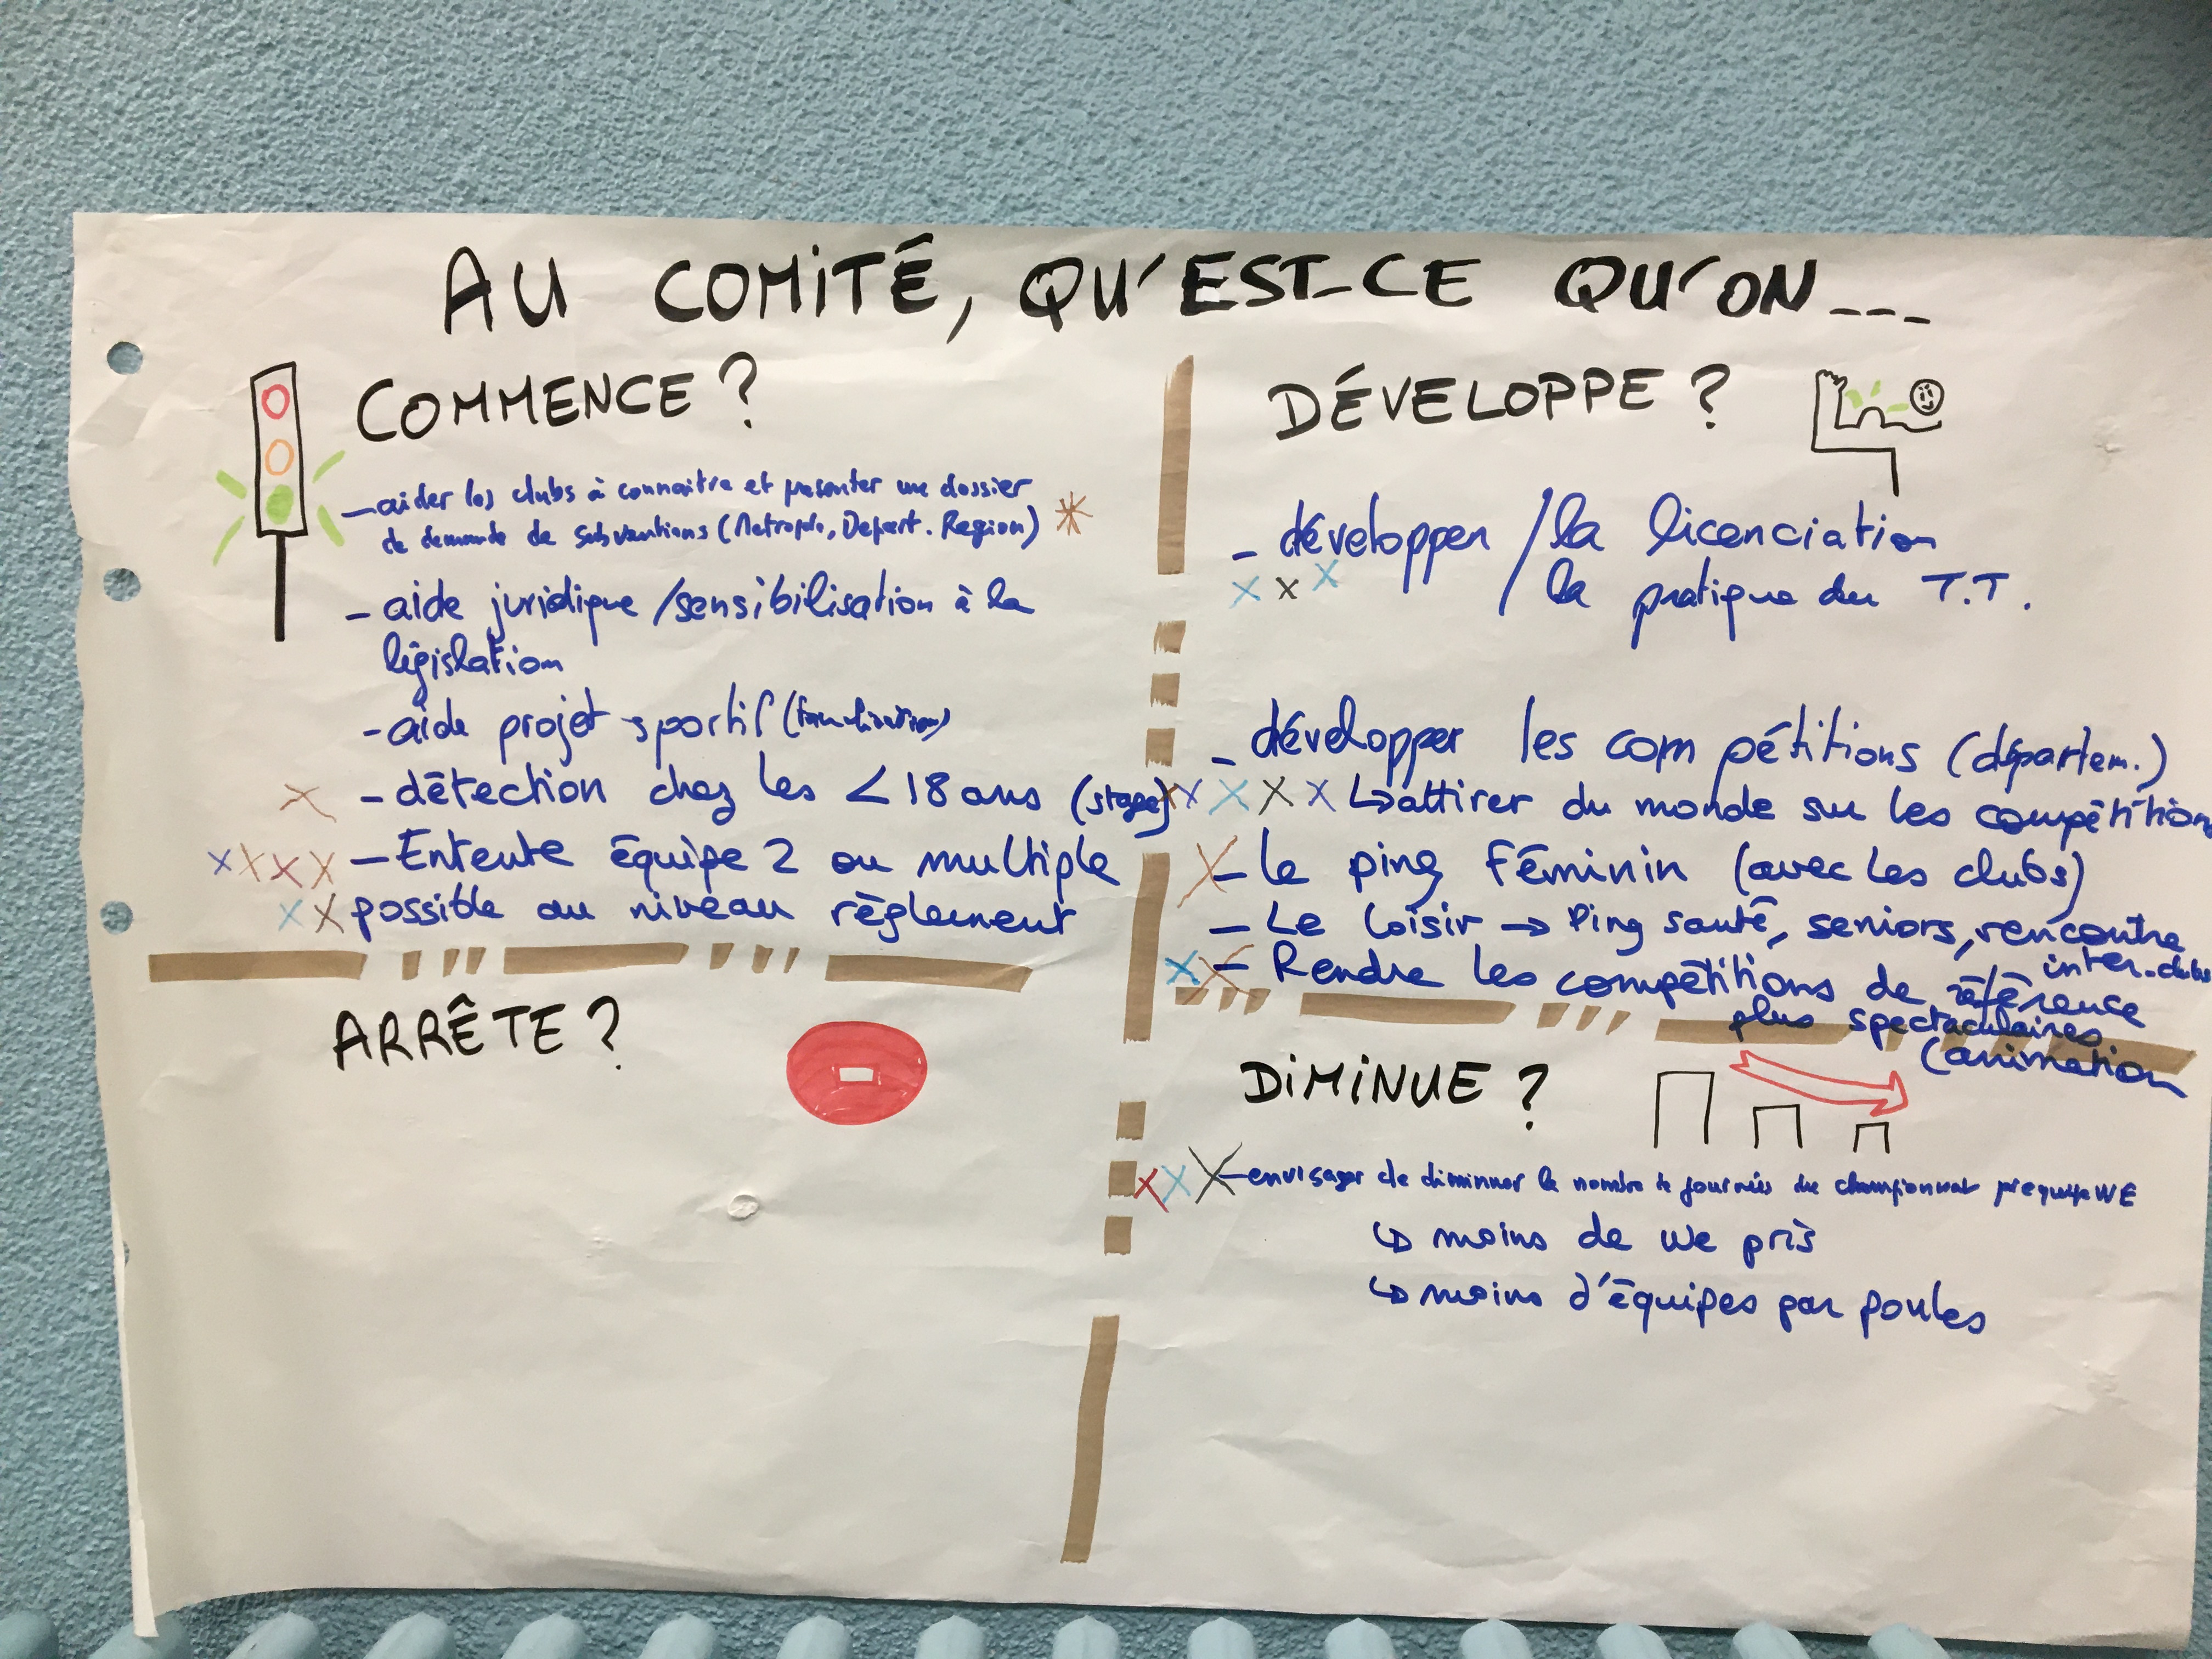 AU COMITÉ, QU'EST-CE QU'ON---
COMMENCE ?
- aider les clubs à connaitre et présenter une dossier
de demande de subventions (Metropole, Depart. Region)
- aide juridique / sensibilisation à la
législation
- aide projet sportif
- détection chez les < 18 ans (stage)
- Entente équipe 2 ou multiple
possible au niveau règlement
DÉVELOPPE ?
- développer / la licenciation
la pratique du T.T.
- développer les compétitions (départem.)
↳ attirer du monde sur les compétitions
- le ping féminin (avec les clubs)
- Le loisir → Ping santé, seniors, rencontre
inter-clubs
- Rendre les compétitions de référence
plus spectaculaires
(animation
ARRÊTE ?
DIMINUE ?
- envisager de diminuer le nombre de journées du championnat par equipe WE
↳ moins de we pris
↳ moins d'équipes par poules